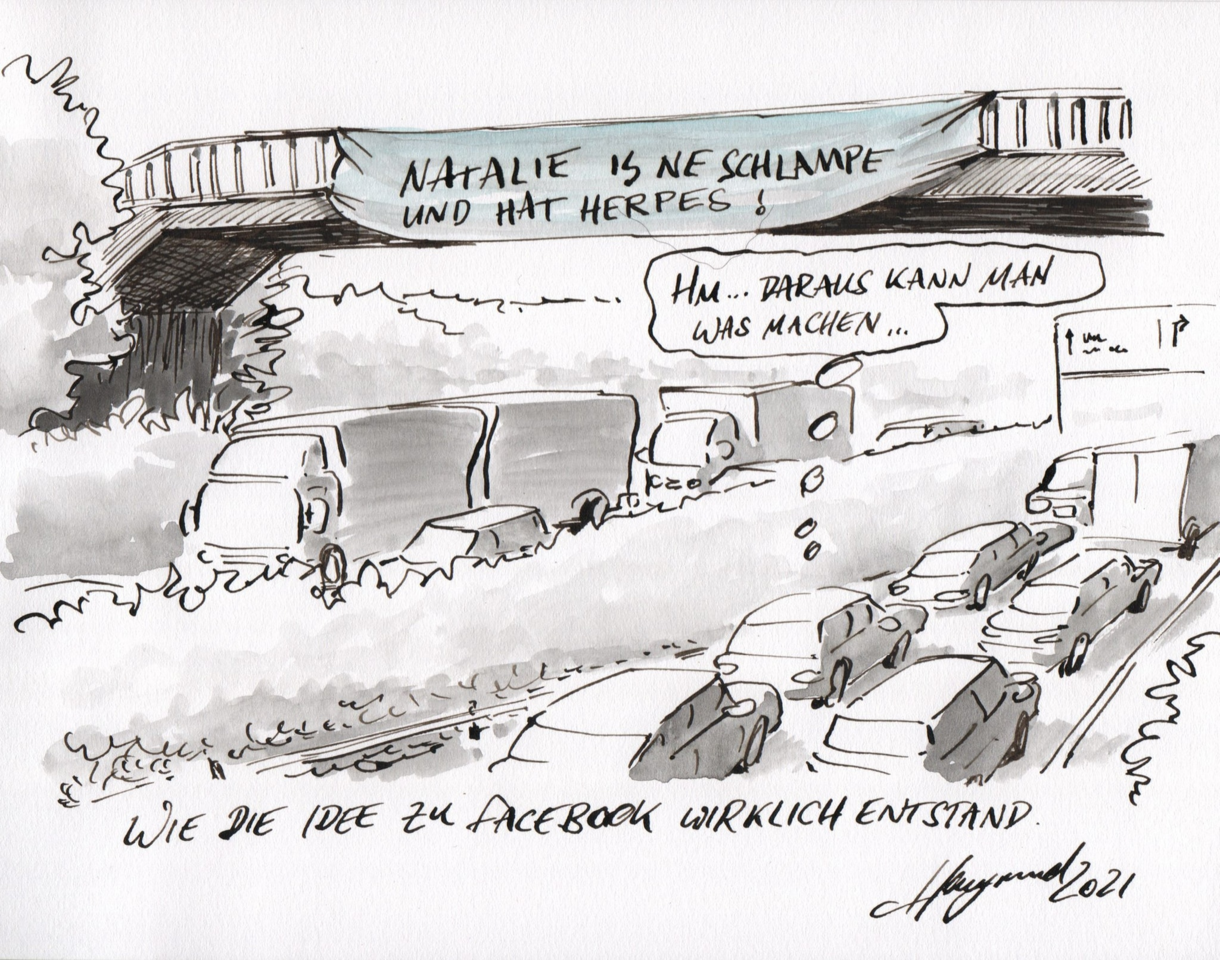 NATALIE IS NE SCHLAMPE
UND HAT HERPES !
HM... DARAUS KANN MAN
WAS MACHEN...
WIE DIE IDEE ZU FACEBOOK WIRKLICH ENTSTAND.
2021